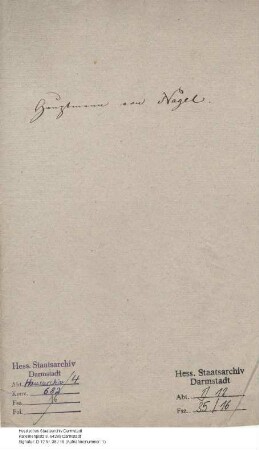 Hauptmann von Nagel.
Hess. Staatsarchiv
Darmstadt
Abt. Hausarchiv/4
Konv. 692
Fasz. 16
Fol.
Hess. Staatsarchiv
Darmstadt
Abt. D 12
Fasz. 35/16
Hessisches Staatsarchiv Darmstadt
Karolinenplatz 3, 64289 Darmstadt